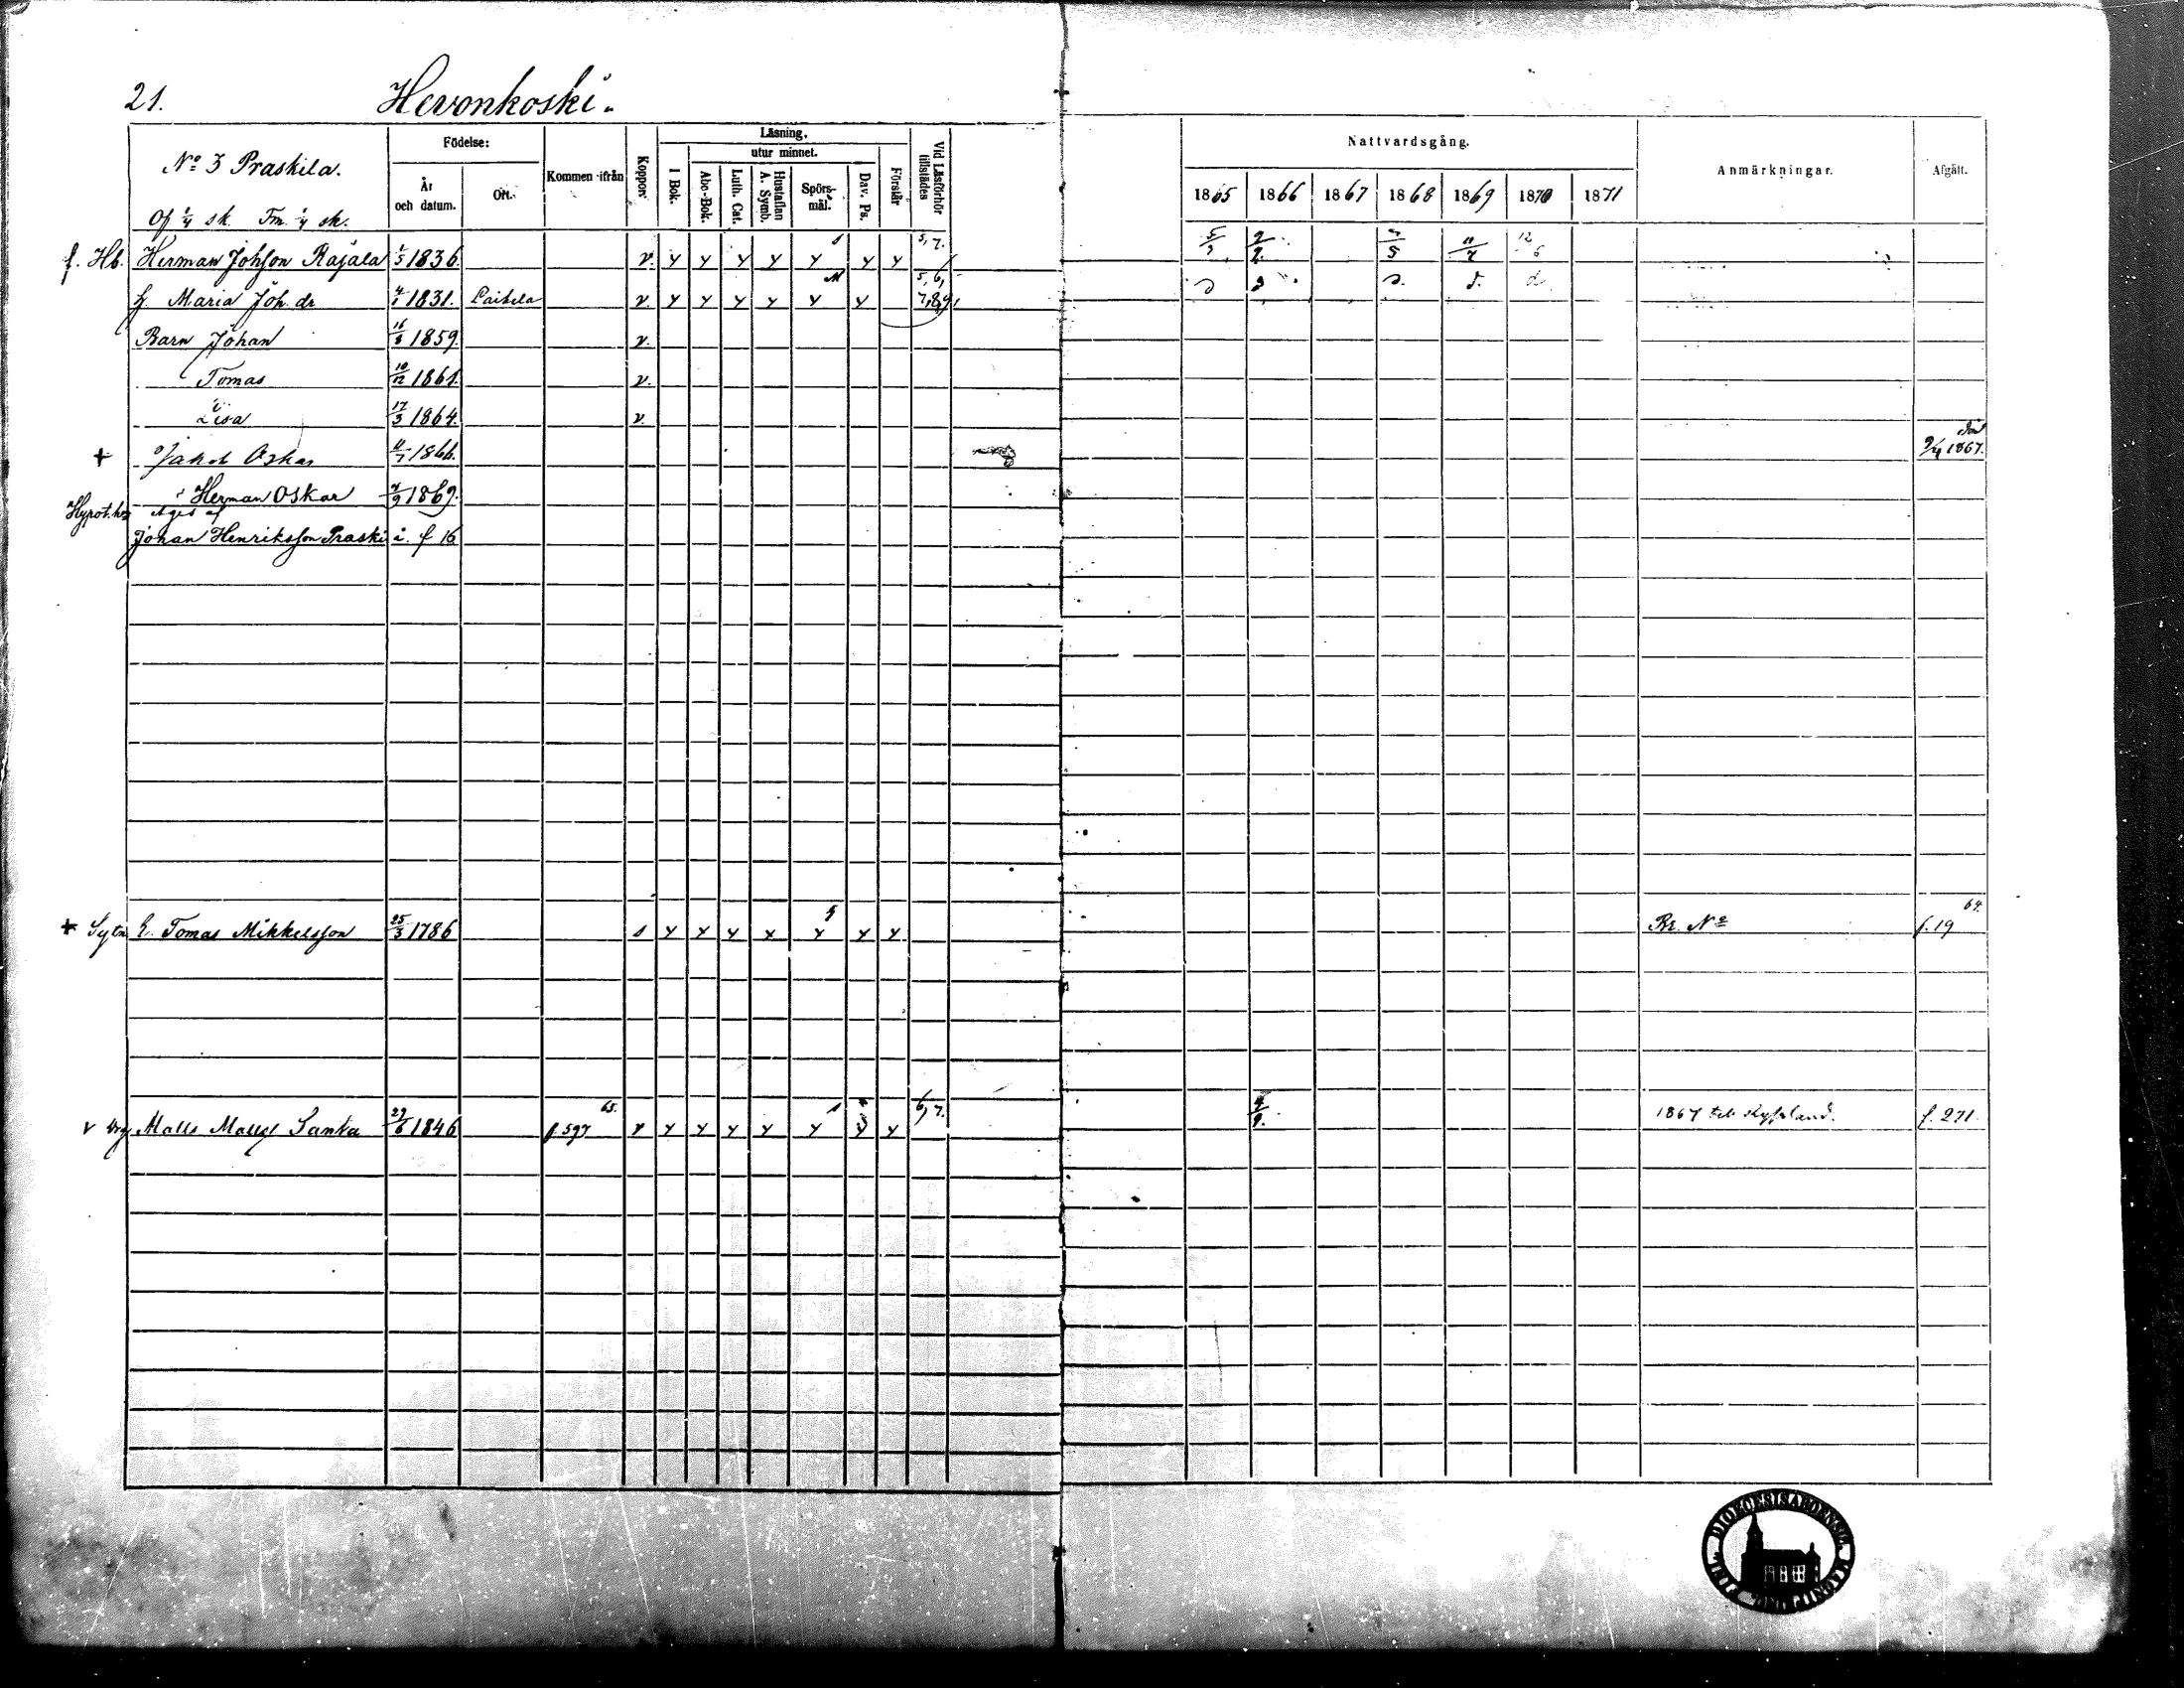 21. Hevonkoski.
Nº 3 Praskila.
Of ¼ sk. Fm. ¼ sk.
Födelse: År och datum. Ort.
Kommen ifrån
Koppor
Läsning.
utur minnet.
I Bok. Abc-Bok. Luth. Cat. Hustaflan A. Symb. Spörsmål. Dav. Ps. Förstår
Vid Läsförhör tillstädes
Nattvardsgång.
1865 1866 1867 1868 1869 1870 1871
Anmärkningar.
Afgått.
f. Hb. Herman Johsson Rajala 1/5 1836. v. y y y y y y y 5, 7. 5/ 2/9. /5 11/7 12/6
h. Maria Joh. dr 4/1 1831. Laihela v. y y y y y y 5, 6, 7, 8, 9, d d d. d. d.
Barn Johan 16/8 1859. v.
Tomas 10/12 1861. v.
Lisa 17/3 1864. v.
+ Jakob Oskar 4/7 1866. död 9/4 1867.
Herman Oskar 7/9 1869.
Äges af
Johan Henriksson Praski i. f 16
+ Sytn E. Tomas Mikkelsson 25/3 1786 s y y y y 5 y y y Br. Nº f. 19 64.
v drg Matts Matts Santa 29/6 1846 f. 597 65. v y y y y y y y 6, 7. 4/9. 1867 till Kyrkland. f. 271.
DIOECESIS ABOENSIS